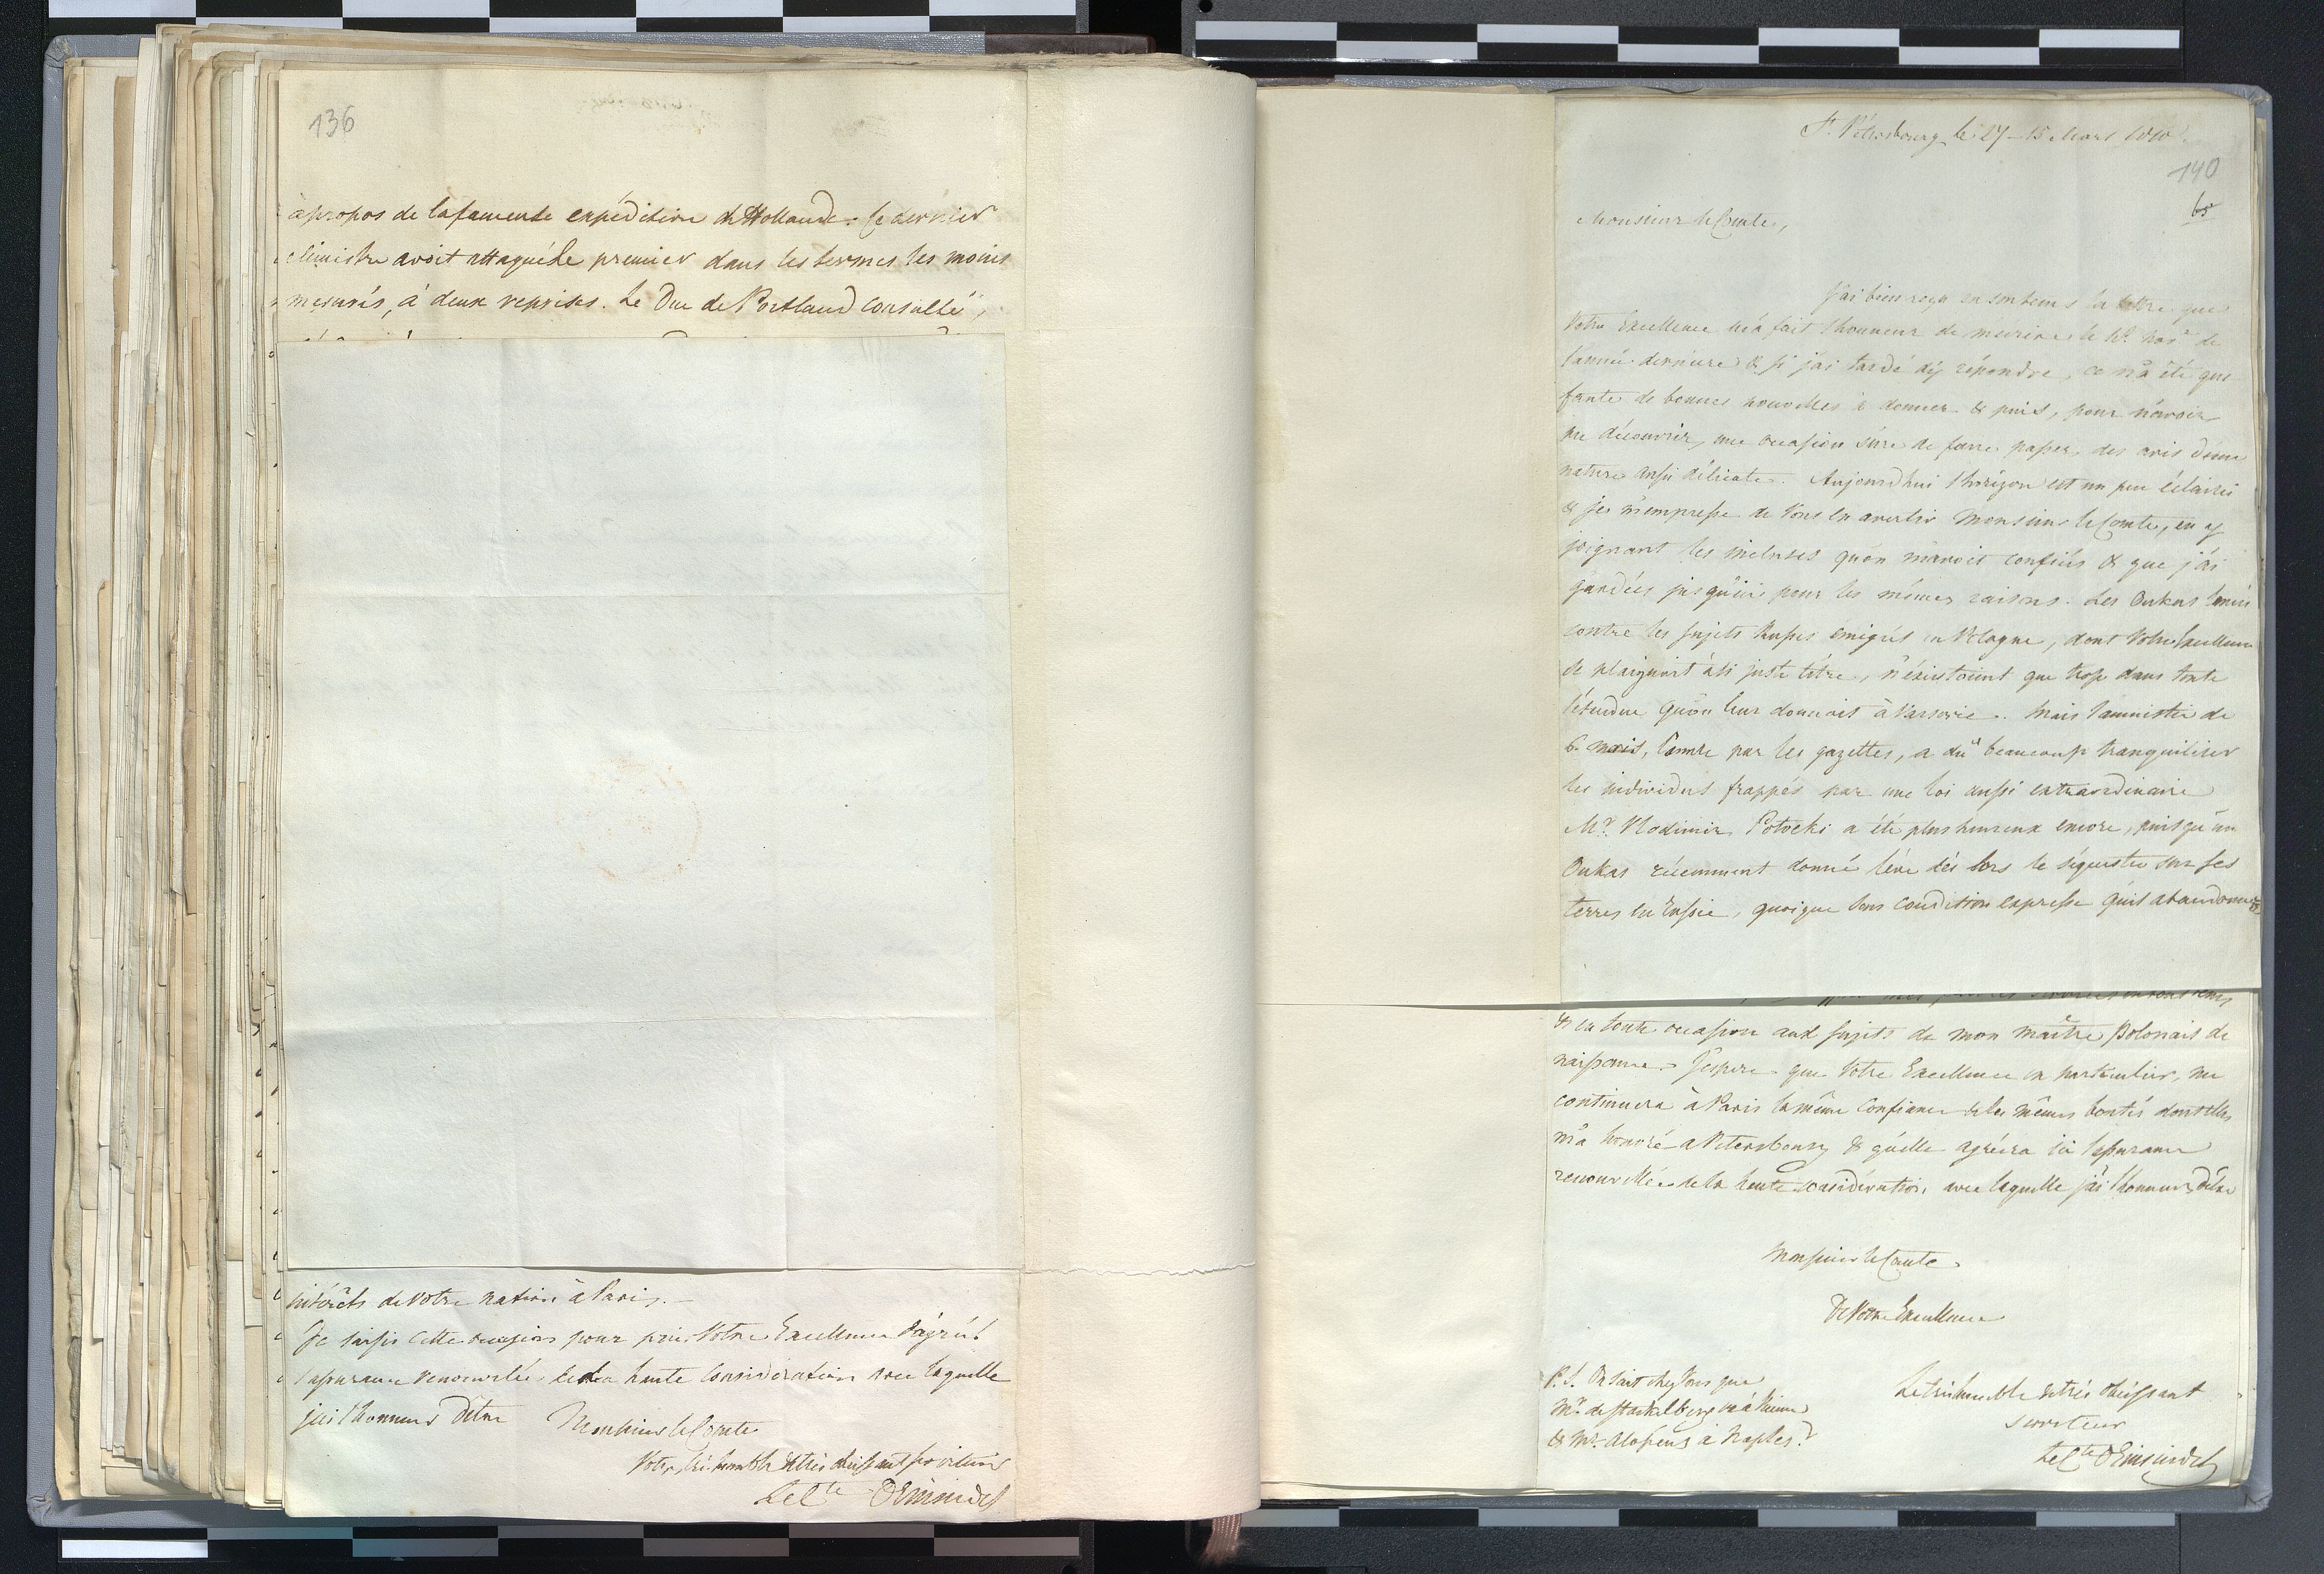 136
àpropos de la fameuse expédition de Hollande. Ce dernier
Ministre avoit attaqué le premier dans les termes les moins
mesurés, à deux reprises. Le Duc de Portland consulté,
intérêts de votre nation à Paris.
Je saisis cette occasion pour prier Votre Excellence d'agréer
l'assurance renouvellée de la haute considération avec laquelle
j'ai l'honneur d'être Monsieur le Comte
Votre très humble & très obéissant serviteur
Le Cte d'Einsiedel
St. Pétersbourg le 27-15 Mars 1810.
140
65
Monsieur le Comte,
J'ai bien reçu en son tems la lettre que
Votre Excellence m'a fait l'honneur de m'écrire le Nov de
l'année dernière & si j'ai tardé d'y répondre, ce n'a été que
faute de bonnes nouvelles à donner & puis, pour n'avoir
pu découvrir une occasion sûre de faire passer des avis d'une
nature aussi délicate. Aujourd'hui l'horizon est un peu éclairci
& je m'empresse de Vous en avertir Monsieur le Comte, en y
joignant les incluses qu'on m'avoit confiées & que j'ai
gardées jusqu'ici pour les mêmes raisons. Les Oukas émis
contre les sujets Russes émigrés en Pologne, dont Votre Excellence
se plaignoit à si juste titre, n'existoient que trop dans toute
l'étendue qu'on leur donnoit à Varsovie. Mais l'amnistie de
6. mois, connue par les gazettes, a dû beaucoup tranquiliser
les individus frappés par une loi aussi extraordinaire
Mr. Vlodimir Potocki a été plus heureux encore, puisqu'un
Oukas récemment donné lève dès lors le séquestre sur ses
terres en Russie, quoique sous condition expresse qu'il abandonne
& en toute occasion aux sujets de mon maître Polonais de
naissance. J'espère que Votre Excellence en particulier, me
continuera à Paris la même confiance & les mêmes bontés dont elle
m'a honoré à Petersbourg & qu'elle agréera ici l'assurance
renouvellée de la haute considération avec laquelle j'ai l'honneur d'être
Monsieur le Comte
De Votre Excellence
P.S. On sait chez Vous que
Mr. de Stackelberg va à Vienne
& Mr. Alopeus à Naples?
Le très humble & très obéissant
serviteur
Le Cte d'Einsiedel